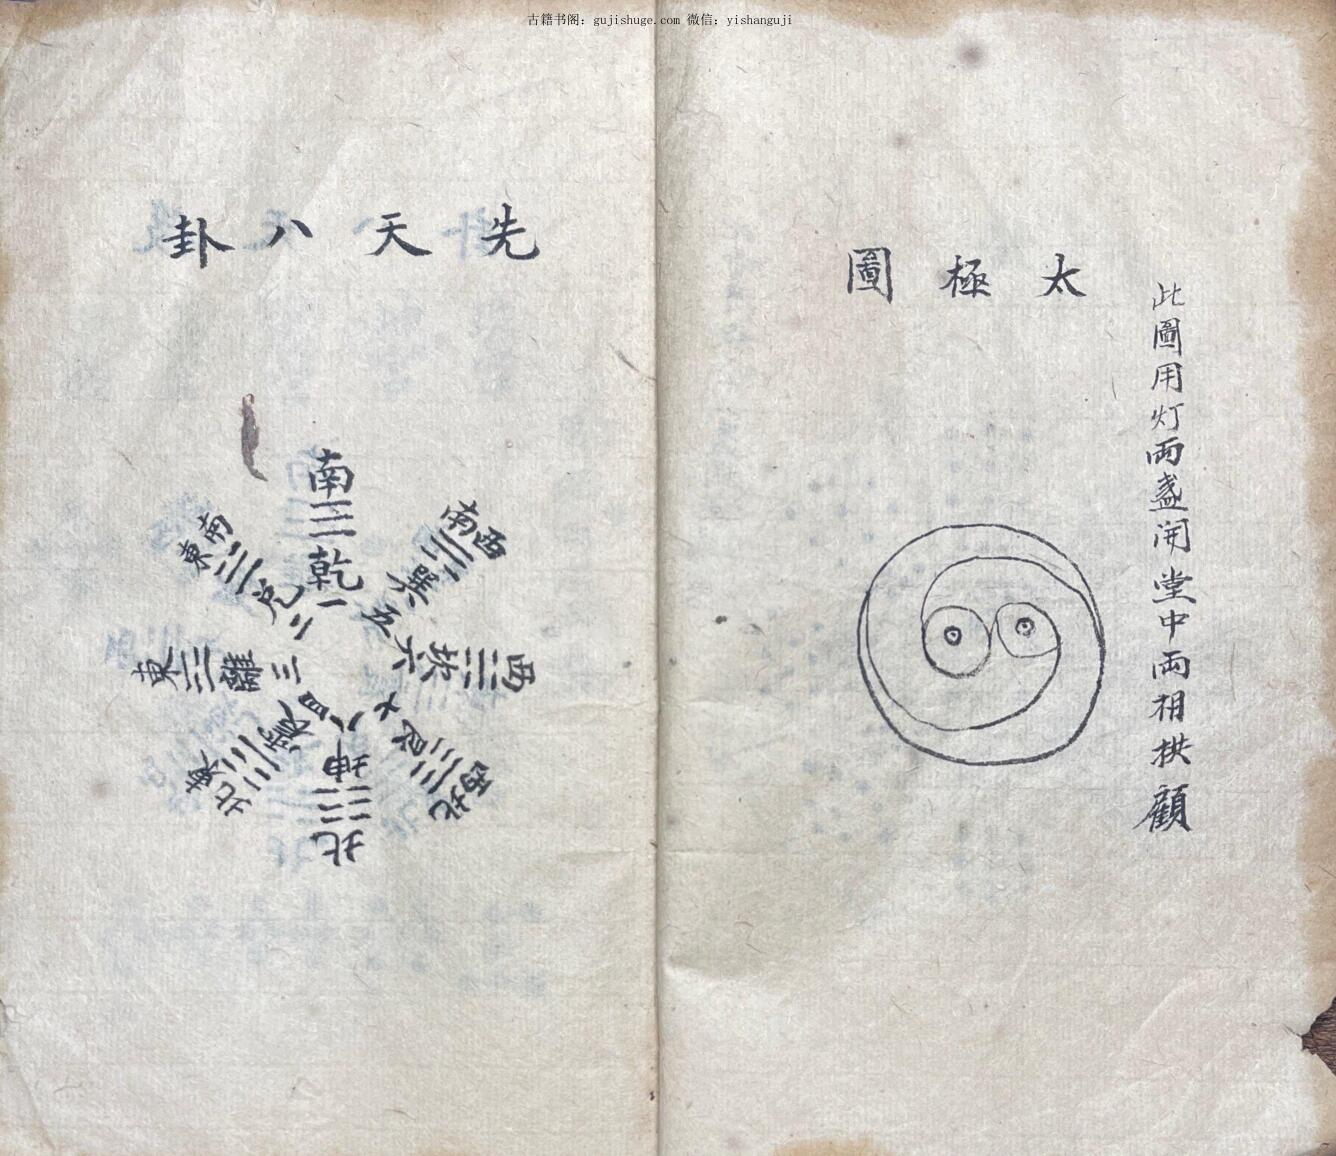 古籍书阁：gujishuge.com 微信：yishanguji
此圖用灯兩盏開堂中兩相拱顧
太極圖
先天八卦
南
☰
乾一
西南
☴
巽五
西
☵
坎六
西北
☶
艮七
北
☷
坤八
東北
☳
震四
東
☲
離三
東南
☱
兌二